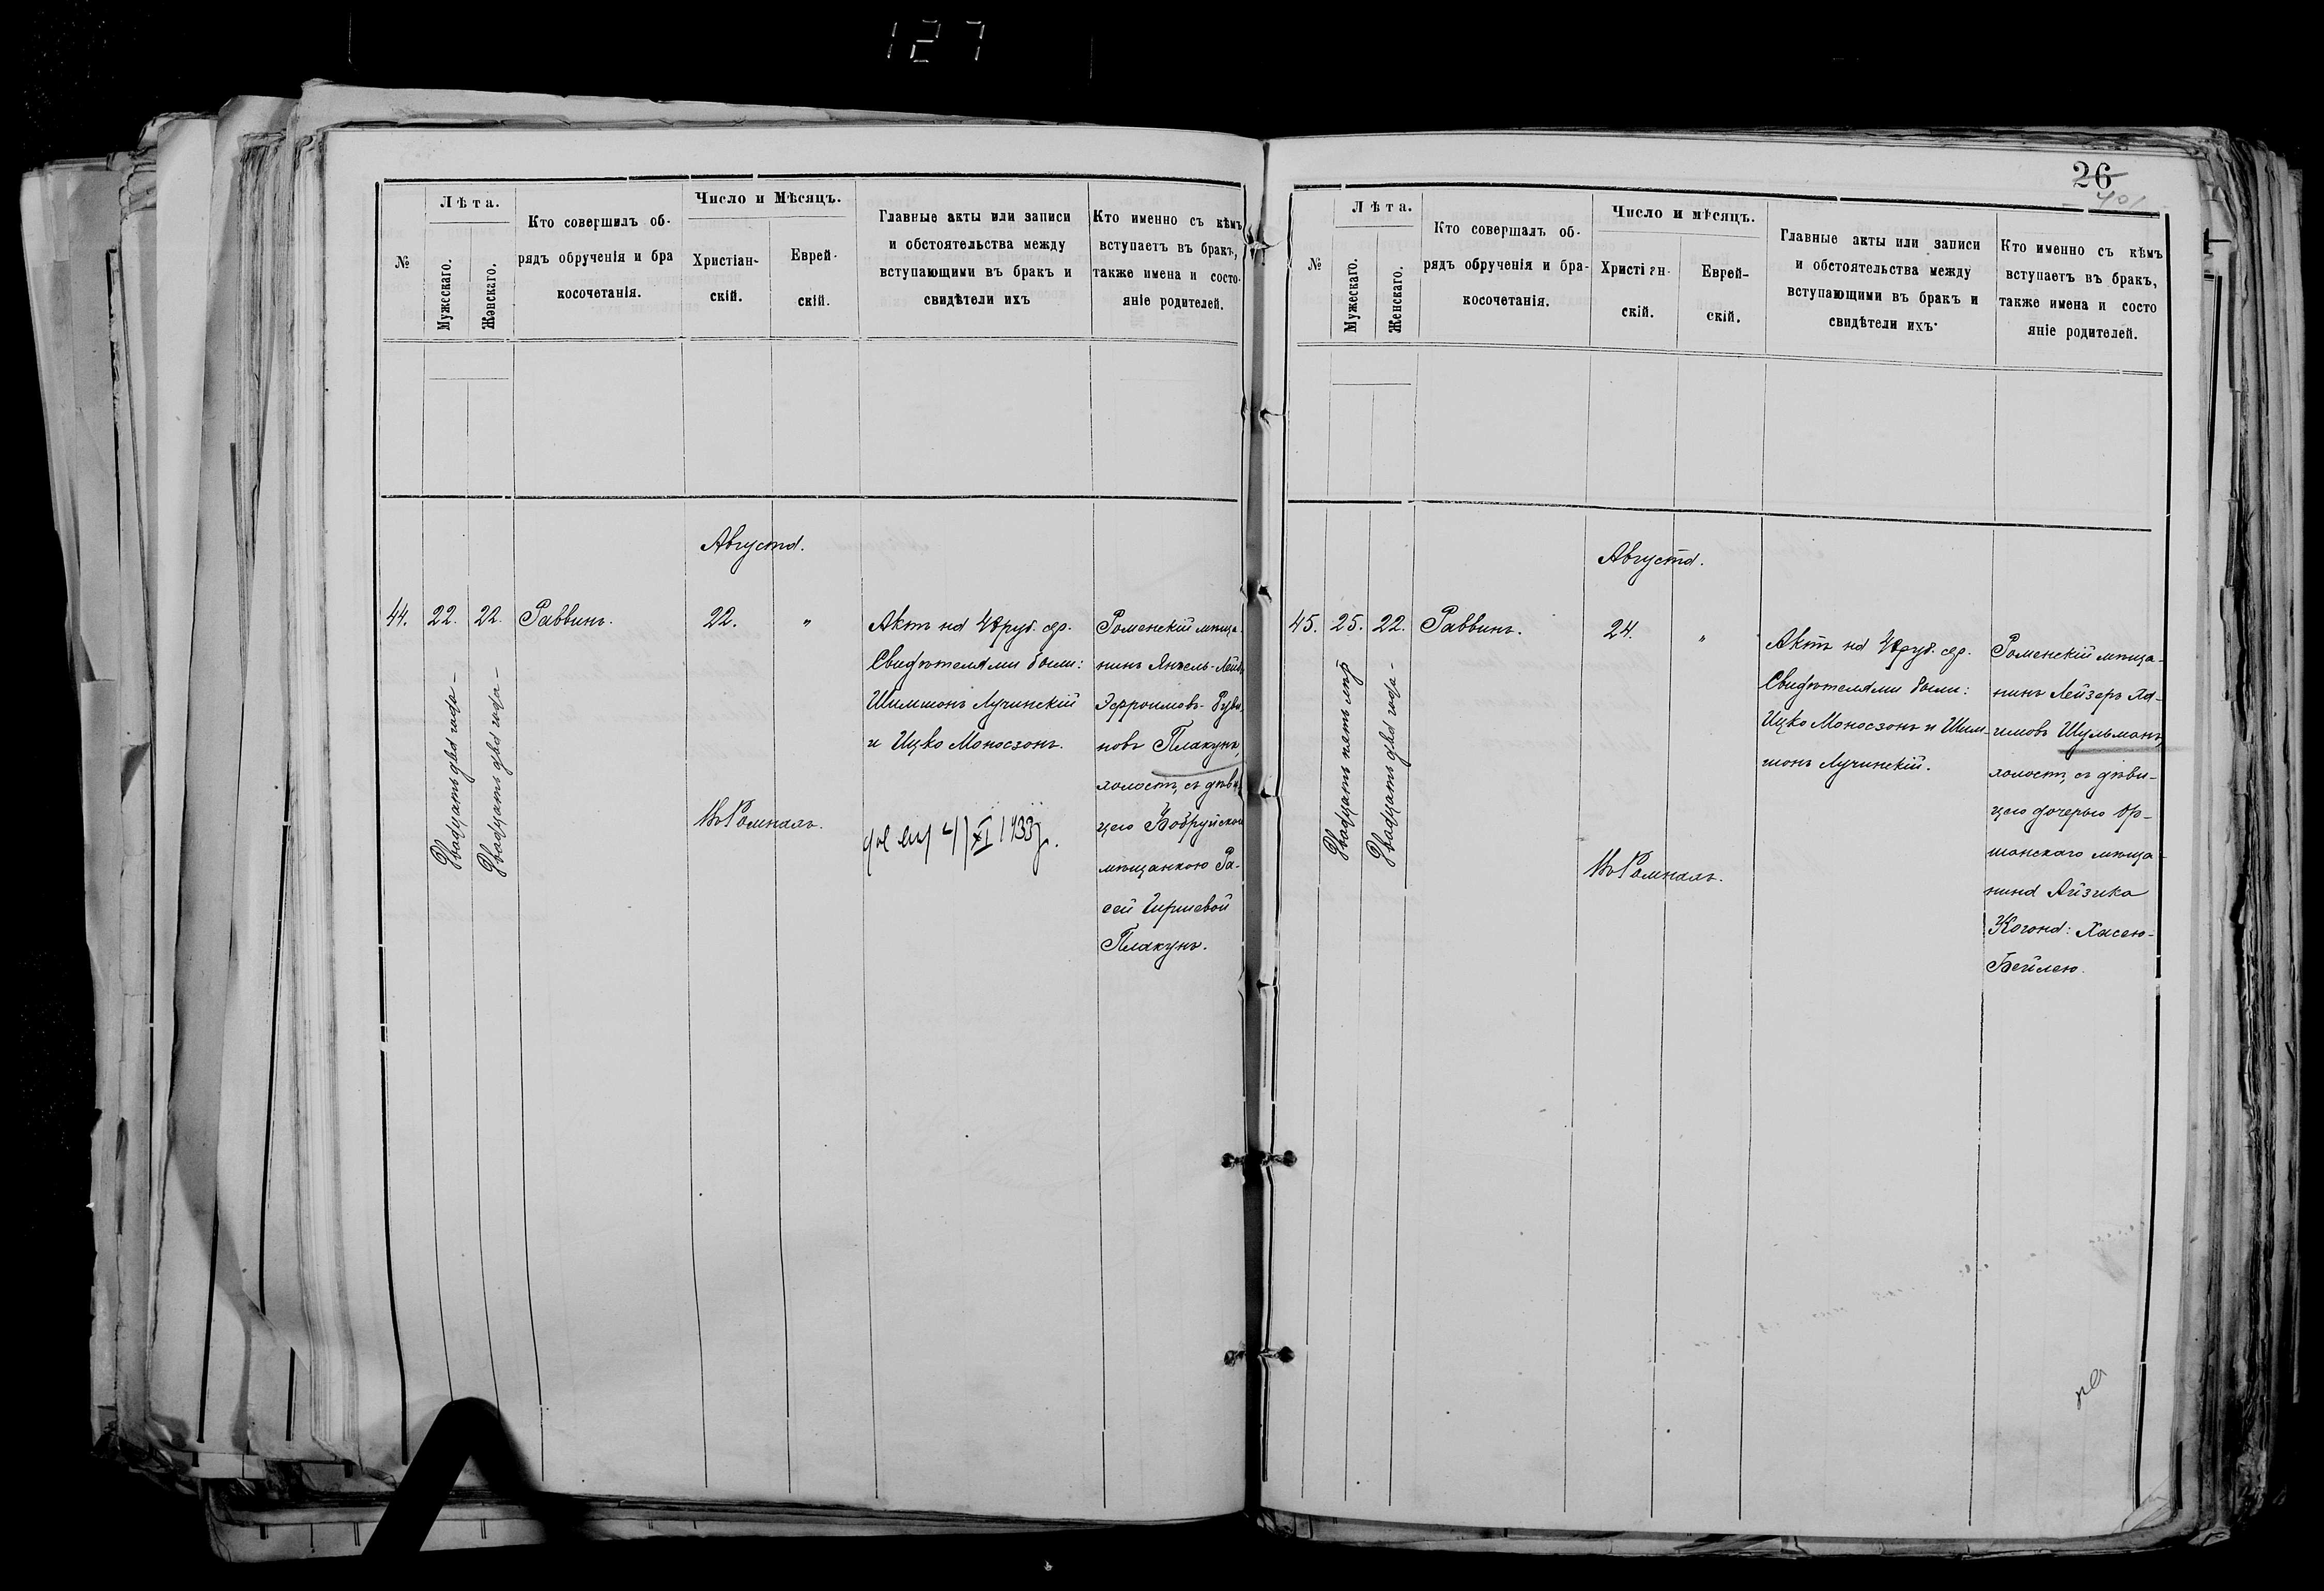 127
№
Лѣта.
Мужескаго.
Женскаго.
Кто совершилъ об-
рядъ обрученія и бра
косочетанія.
Число и Мѣсяцъ.
Христіан-
скій.
Еврей-
скій.
Главные акты или записи
и обстоятельства между
вступающими въ бракъ и
свидѣтели ихъ
Кто именно съ кѣмъ
вступаетъ въ бракъ,
также имена и состо-
яніе родителей.
Августа.
44.
22.
22.
Двадцать два года-
Двадцать два года-
Раввинъ.
22.
"
Въ Ромнахъ.
Актъ на 48 руб. сер.
Свидѣтелями были:
Шимшонъ Лучинскій
и Ицко Моносзонъ.
XI 1933г.
Роменскій мѣща-
нинъ Янкель-Лейба
Эфроимовъ-Руви-
новъ Плакунъ,
холостъ, съ дѣви-
цею Бобруйскою
мѣщанкою Ра-
сей Гиршевой
Плакунъ.
26
401
№
Лѣта.
Мужескаго.
Женскаго.
Кто совершалъ об-
рядъ обрученія и бра-
косочетанія.
Число и мѣсяцъ.
Христіан-
скій.
Еврей-
скій.
Главные акты или записи
и обстоятельства между
вступающими въ бракъ и
свидѣтели ихъ
Кто именно съ кѣмъ
вступаетъ въ бракъ,
также имена и состо
яніе родителей.
Августа.
45.
25.
22.
Двадцать пять лѣтъ
Двадцать два года-
Раввинъ.
24.
"
Въ Ромнахъ.
Актъ на 48 руб. сер.
Свидѣтелями были:
Ицко Моносзонъ и Шим-
шонъ Лучинскій.
Роменскій мѣща-
нинъ Лейзеръ Ха-
имовъ Шульманъ,
холостъ, съ дѣви-
цею дочерью Ор-
шанскаго мѣща-
нина Айзика
Когона: Хасею-
Бейлею.